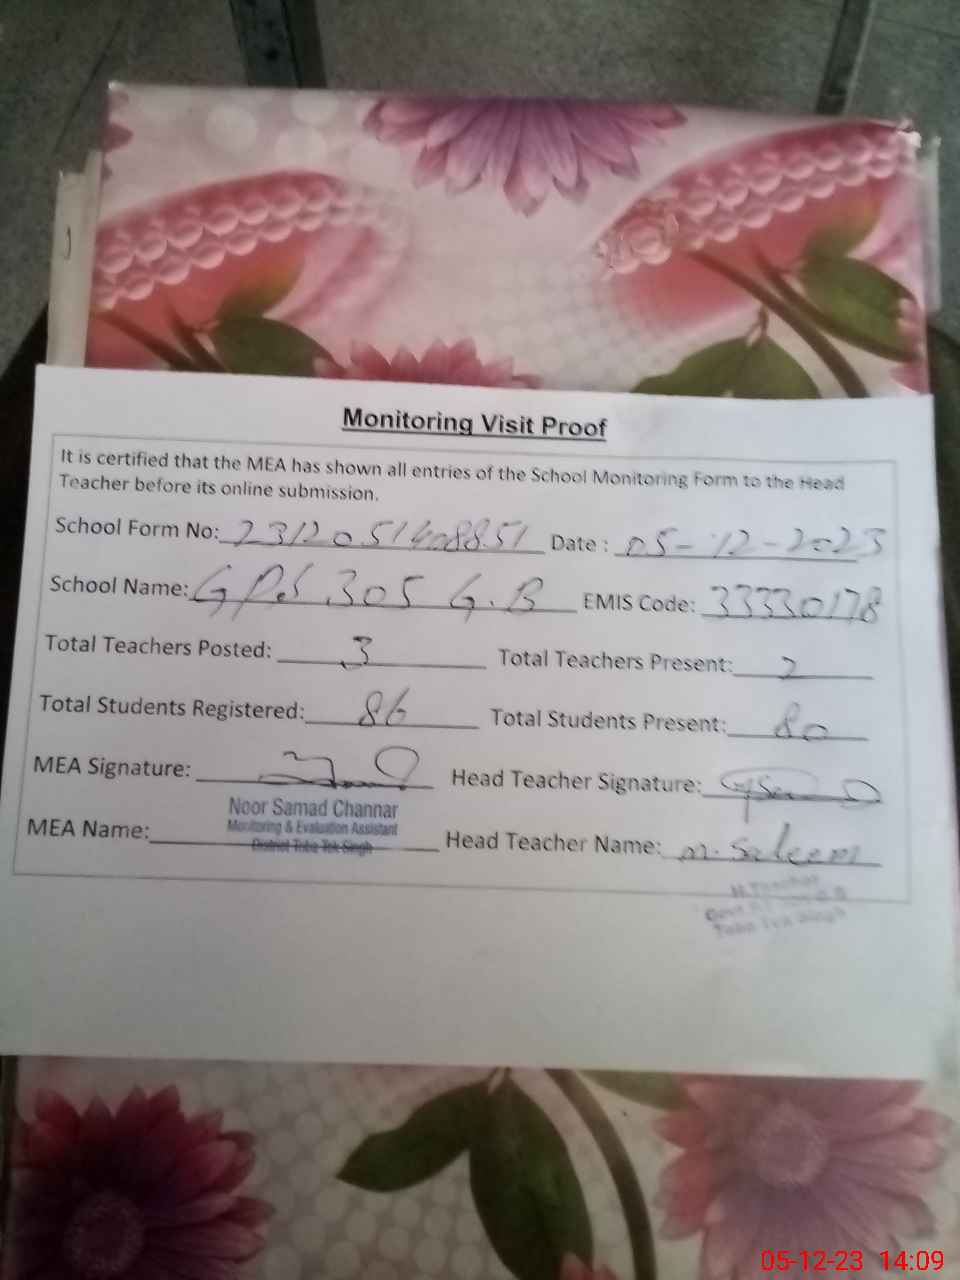 Monitoring Visit Proof
It is certified that the MEA has shown all entries of the School Monitoring Form to the Head
Teacher before its online submission.
School Form No: 2312051408851 Date : 05-12-2023
School Name: GPS 305 G.B EMIS Code: 33330178
Total Teachers Posted: 3 Total Teachers Present: 2
Total Students Registered: 86 Total Students Present: 80
MEA Signature: Head Teacher Signature:
Noor Samad Channar
Monitoring & Evaluation Assistant
District Toba Tek Singh
MEA Name: Head Teacher Name: M. Saleem
H.Teacher
Govt.
Toba Tek Singh
05-12-23 14:09